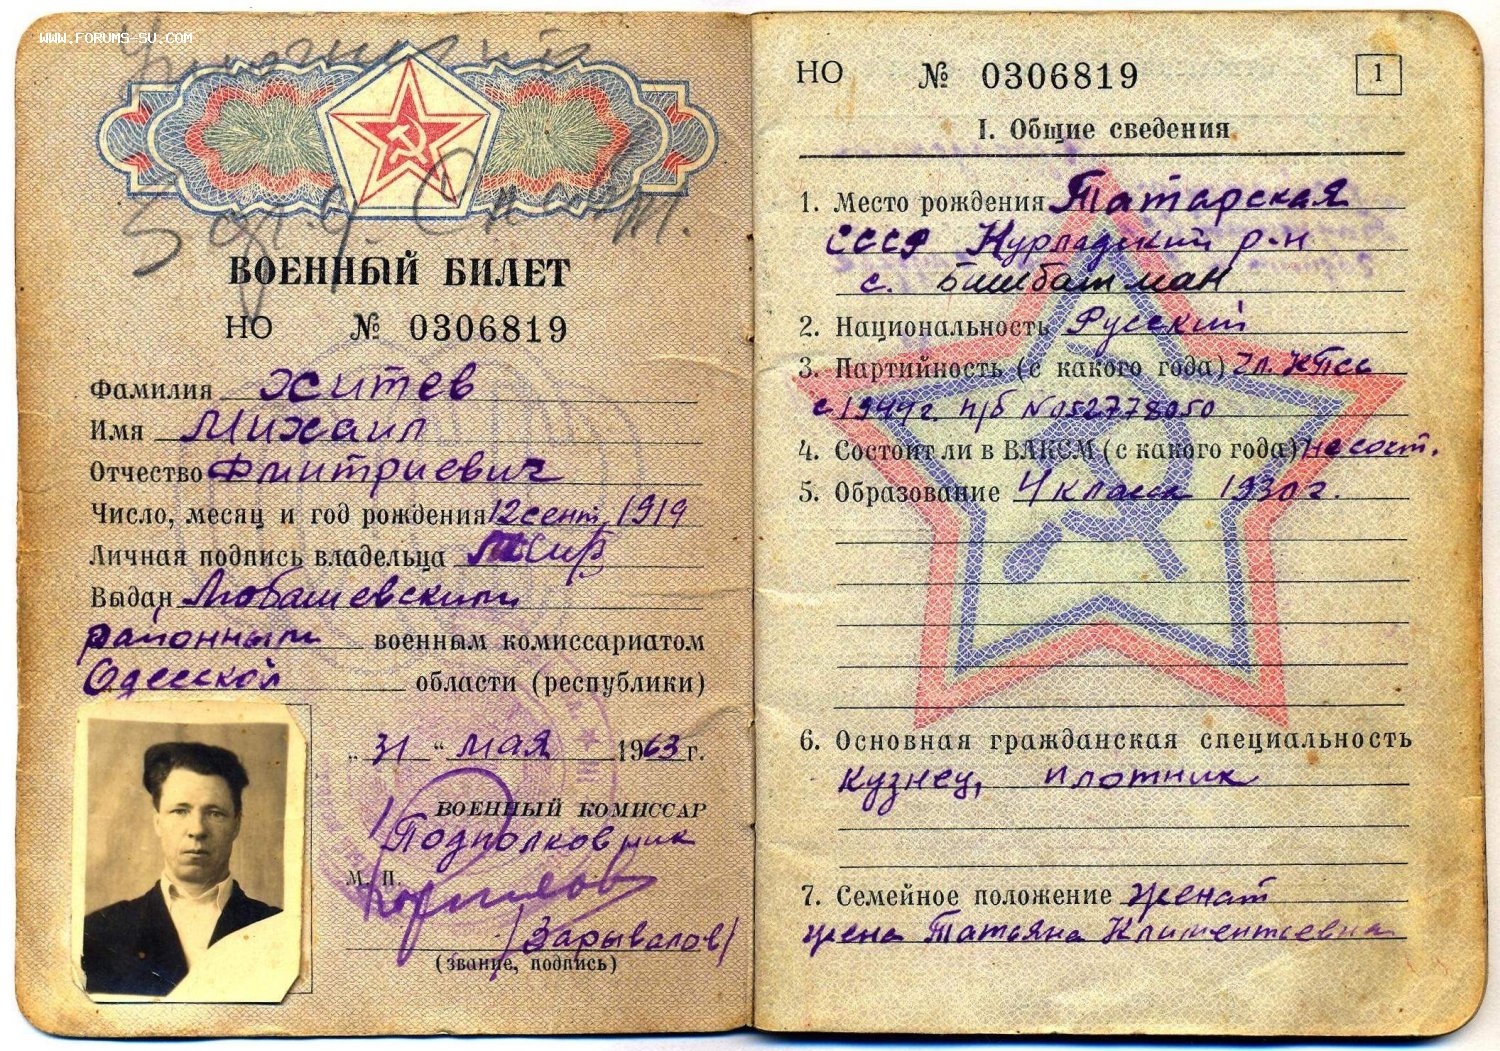 WWW.FORUMS-SU.COM
ВОЕННЫЙ БИЛЕТ
НО № 0306819
Фамилия Житев
Имя Михаил
Отчество Дмитриевич
Число, месяц и год рождения 12 сент. 1919
Личная подпись владельца
Выдан Любашевским
районным военным комиссариатом
Одесской области (республики)
„31“ мая 1963 г.
ВОЕННЫЙ КОМИССАР
Подполковник
М. П.
/Зарывалов/
(звание, подпись)
НО № 0306819
1
I. Общие сведения
1. Место рождения Татарская
СССР Нурладский р-н
с. Бишбатман
2. Национальность Русский
3. Партийность (с какого года) Чл. КПСС
с 1944 г. п/б N 052778050
4. Состоит ли в ВЛКСМ (с какого года) не сост.
5. Образование 4 класса 1930 г.
6. Основная гражданская специальность
кузнец, плотник
7. Семейное положение женат
жена Татьяна Климентьевна